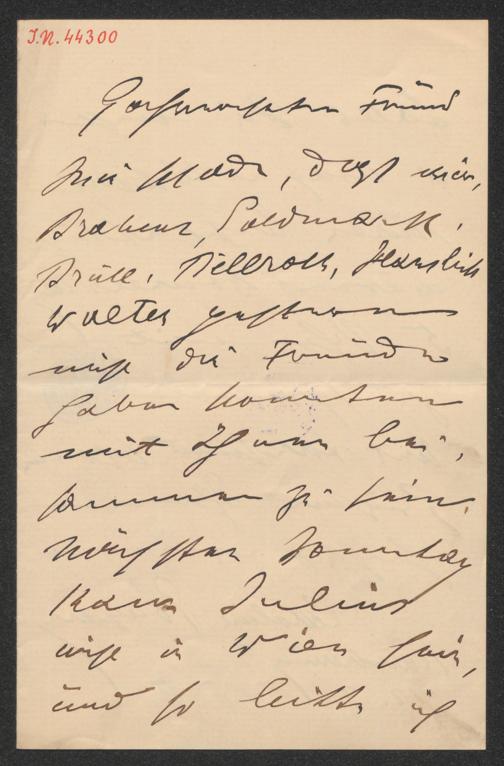 I.N. 44300
Hochverehrter Freund
wie schade, daß wir,
Brahms, Goldmark,
Brüll, Billroth, Hanslick
Walter gestern
nicht die Freude
haben konnten
mit Ihnen bei-
sammen zu sein.
Nächsten Sonntag
kann Julius
nicht in Wien sein,
und so bitte ich